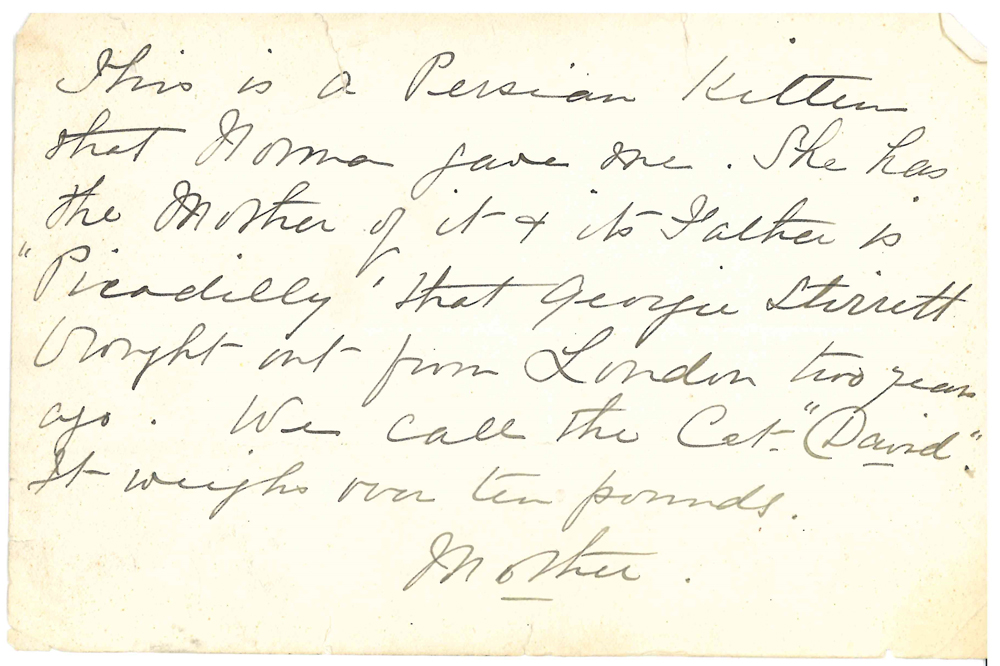 This is a Persian Kitten
that Norma gave me. She has
the Mother of it & its Father is
"Picadilly" that Georgie Stirrett
brought out from London two years
ago. We call the Cat "David".
It weighs over ten pounds.
Mother.